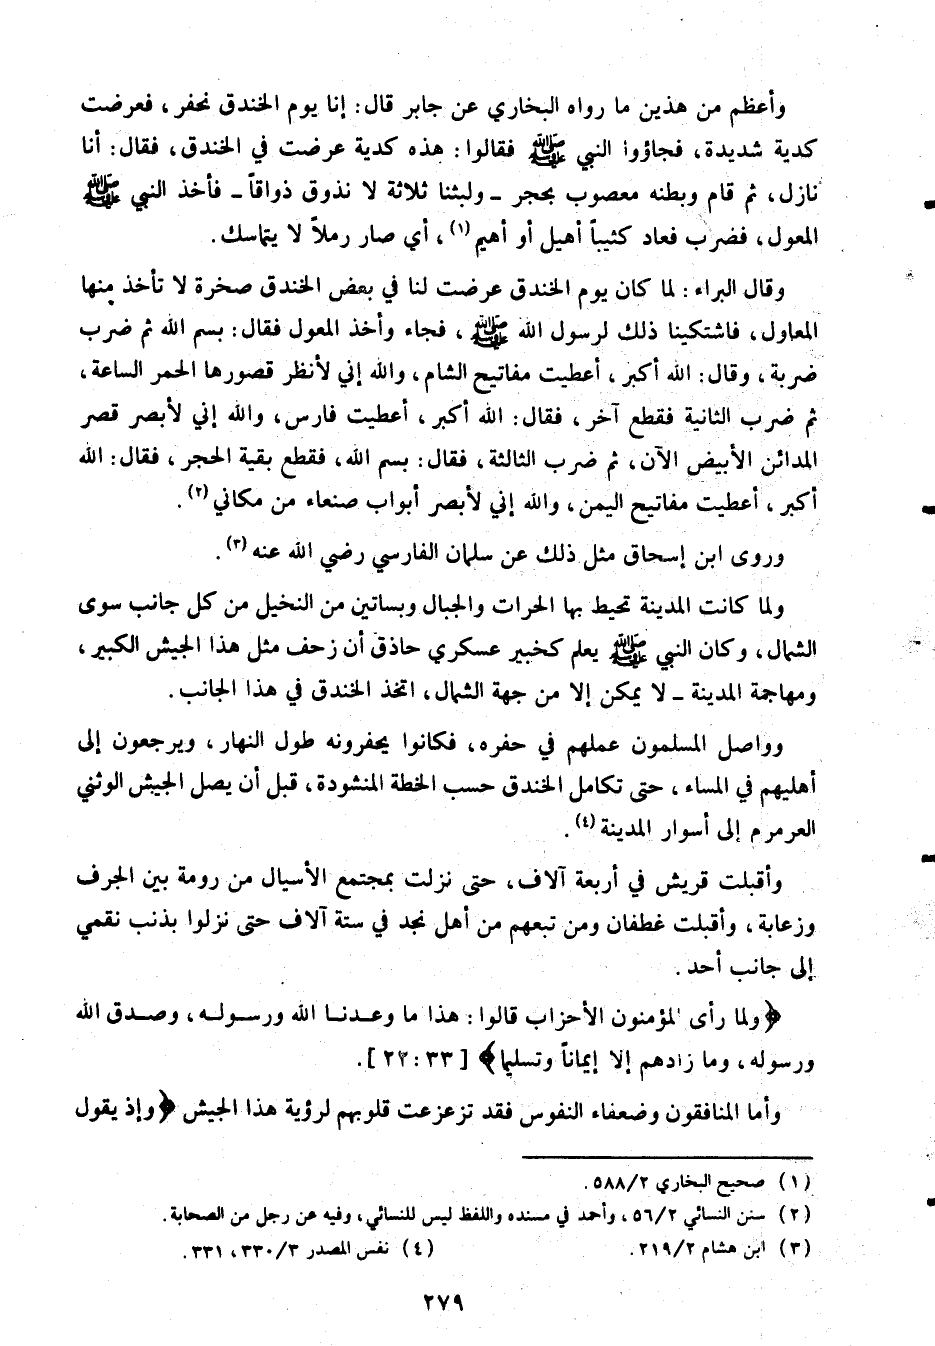 وأعظم من هذين ما رواه البخاري عن جابر قال: إنا يوم الخندق نحفر، فعرضت
كدية شديدة، فجاؤوا النبي ﷺ فقالوا: هذه كدية عرضت في الخندق، فقال: أنا
نازل، ثم قام وبطنه معصوب بحجر ـ ولبثنا ثلاثة لا نذوق ذواقاً ـ فأخذ النبي ﷺ
المعول، فضرب فعاد كثيباً أهيل أو أهيم(١)، أي صار رملاً لا يتماسك.
وقال البراء: لما كان يوم الخندق عرضت لنا في بعض الخندق صخرة لا تأخذ منها
المعاول، فاشتكينا ذلك لرسول الله ﷺ، فجاء وأخذ المعول فقال: بسم الله ثم ضرب
ضربة، وقال: الله أكبر، أعطيت مفاتيح الشام، والله إني لأنظر قصورها الحمر الساعة،
ثم ضرب الثانية فقطع آخر، فقال: الله أكبر، أعطيت فارس، والله إني لأبصر قصر
المدائن الأبيض الآن، ثم ضرب الثالثة، فقال: بسم الله، فقطع بقية الحجر، فقال: الله
أكبر، أعطيت مفاتيح اليمن، والله إني لأبصر أبواب صنعاء من مكاني(٢).
وروى ابن إسحاق مثل ذلك عن سلمان الفارسي رضي الله عنه(٣).
ولما كانت المدينة تحيط بها الحرات والجبال وبساتين من النخيل من كل جانب سوى
الشمال، وكان النبي ﷺ يعلم كخبير عسكري حاذق أن زحف مثل هذا الجيش الكبير،
ومهاجمة المدينة ـ لا يمكن إلا من جهة الشمال، اتخذ الخندق في هذا الجانب.
وواصل المسلمون عملهم في حفره، فكانوا يحفرونه طول النهار، ويرجعون إلى
أهليهم في المساء، حتى تكامل الخندق حسب الخطة المنشودة، قبل أن يصل الجيش الوثني
العرمرم إلى أسوار المدينة(٤).
وأقبلت قريش في أربعة آلاف، حتى نزلت بمجتمع الأسيال من رومة بين الجرف
وزعابة، وأقبلت غطفان ومن تبعهم من أهل نجد في ستة آلاف حتى نزلوا بذنب نقمي
إلى جانب أحد.
﴿ولما رأى المؤمنون الأحزاب قالوا: هذا ما وعدنا الله ورسوله، وصدق الله
ورسوله، وما زادهم إلا إيماناً وتسليما﴾ [٣٣: ٢٢].
وأما المنافقون وضعفاء النفوس فقد تزعزعت قلوبهم لرؤية هذا الجيش ﴿وإذ يقول
(١) صحيح البخاري ٥٨٨/٢.
(٢) سنن النسائي ٥٦/٢، وأحمد في مسنده واللفظ ليس للنسائي، وفيه عن رجل من الصحابة.
(٣) ابن هشام ٢١٩/٢. (٤) نفس المصدر ٣٣٠/٣، ٣٣١.
٢٧٩